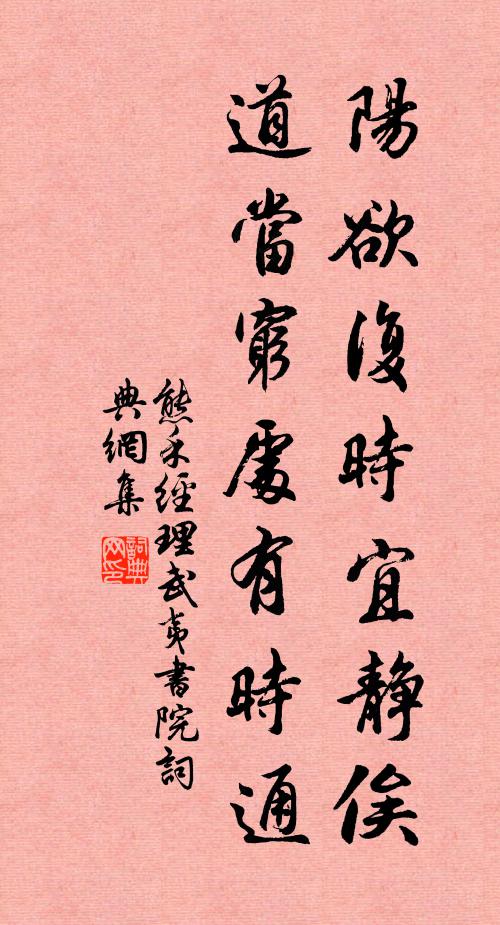 陽欲復時宜靜俟
道當窮處有時通
熊禾經理武夷書院詞
典網集
詞典
网印